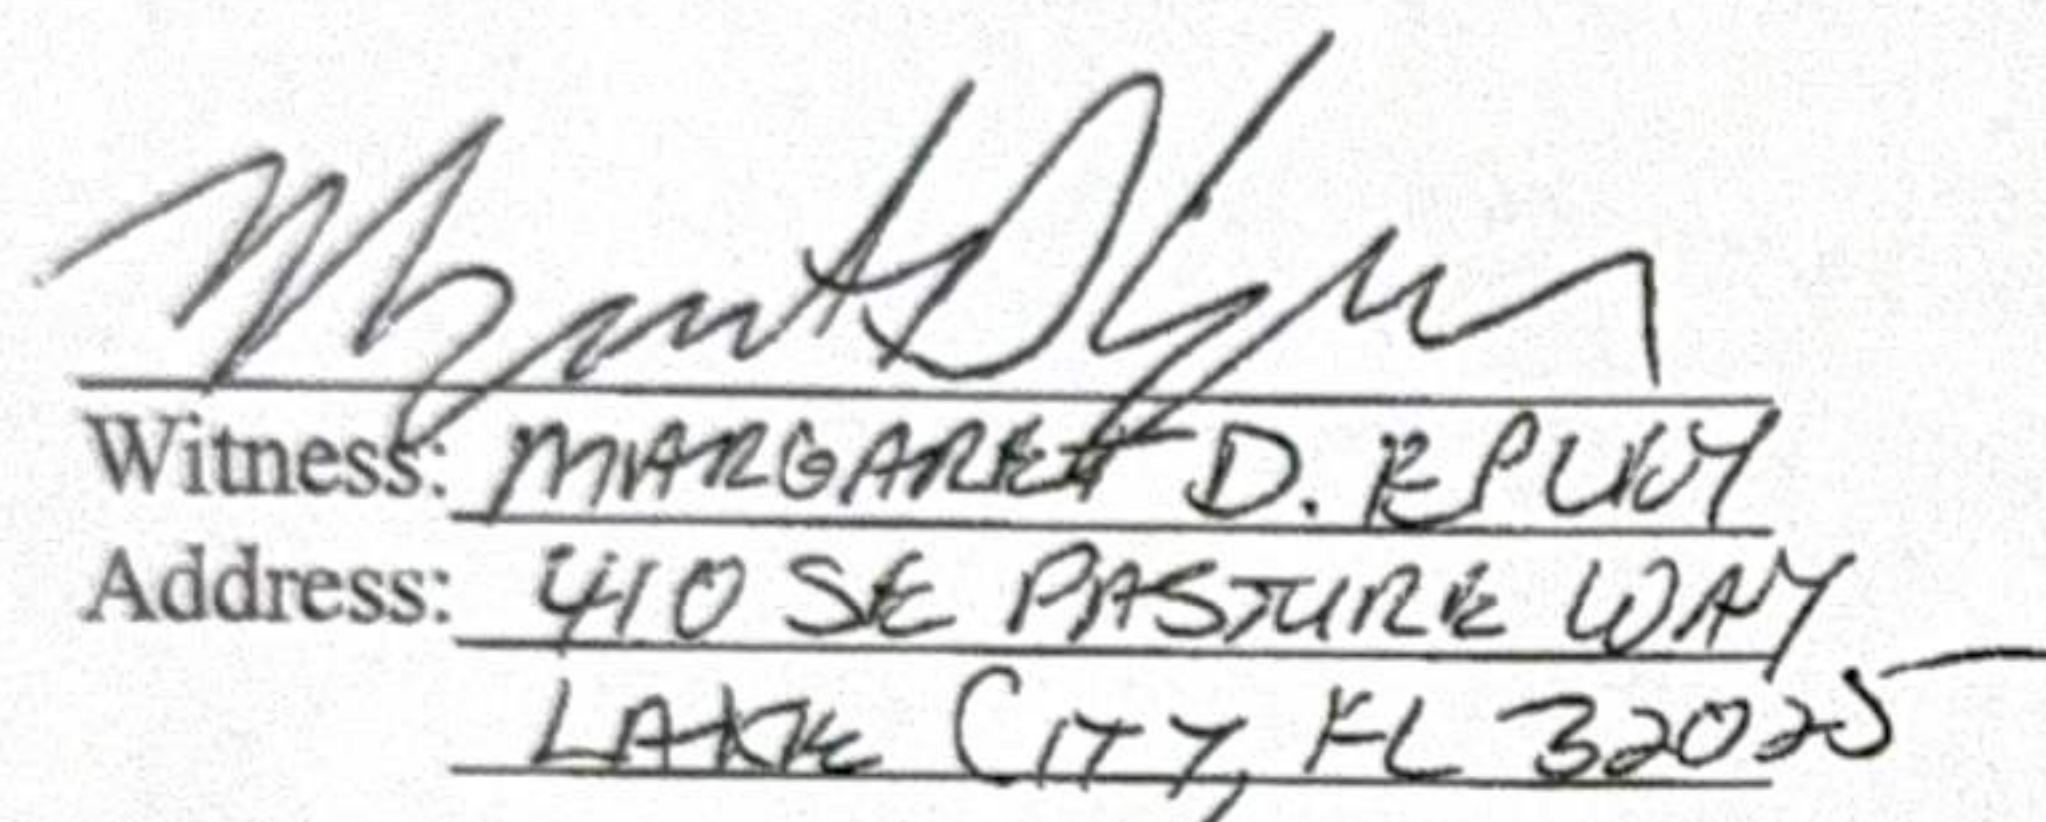 Witness: MARGARET D. EPLEY
Address: 410 SE PASTURE WAY
LAKE CITY, FL 32025